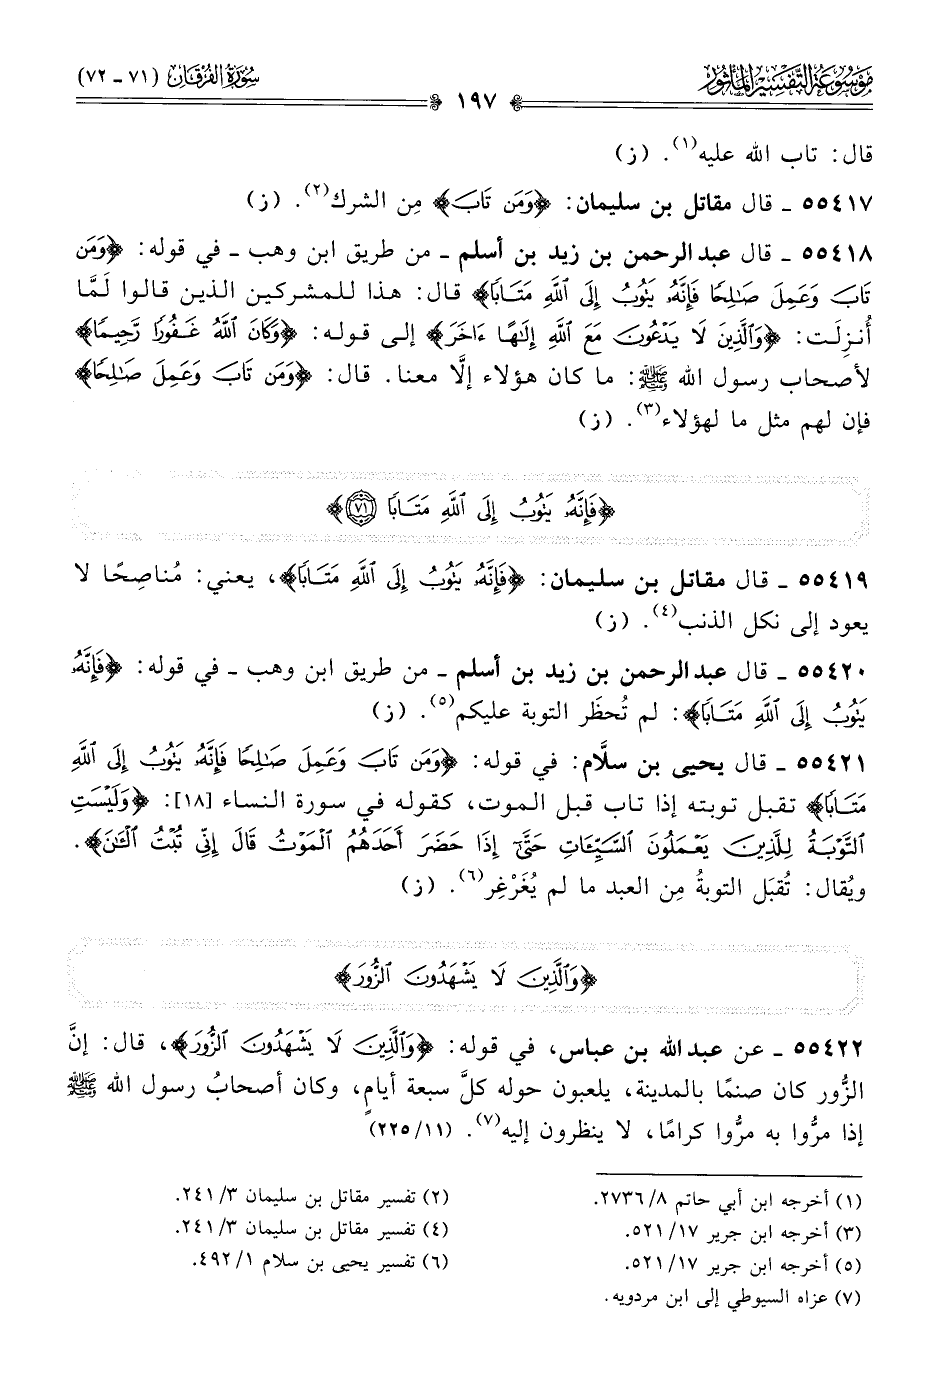 موسوعة التفسير المأثور
سورة الفرقان (٧١ - ٧٢)
١٩٧
قال: تاب الله عليه(١). (ز)
٥٥٤١٧ - قال مقاتل بن سليمان: ﴿وَمَن تَابَ﴾ مِن الشرك(٢). (ز)
٥٥٤١٨ - قال عبد الرحمن بن زيد بن أسلم - من طريق ابن وهب - في قوله: ﴿وَمَن
تَابَ وَعَمِلَ صَـٰلِحًا فَإِنَّهُۥ يَتُوبُ إِلَى ٱللَّهِ مَتَابًا﴾ قال: هذا للمشركين الذين قالوا لمَّا
أُنزِلَت: ﴿وَٱلَّذِينَ لَا يَدْعُونَ مَعَ ٱللَّهِ إِلَـٰهًا ءَاخَرَ﴾ إلى قوله: ﴿وَكَانَ ٱللَّهُ غَفُورًا رَّحِيمًا﴾
لأصحاب رسول الله ﷺ: ما كان هؤلاء إلَّا معنا. قال: ﴿وَمَن تَابَ وَعَمِلَ صَـٰلِحًا﴾
فإن لهم مثل ما لهؤلاء(٣). (ز)
﴿فَإِنَّهُۥ يَتُوبُ إِلَى ٱللَّهِ مَتَابًا ٧١﴾
٥٥٤١٩ - قال مقاتل بن سليمان: ﴿فَإِنَّهُۥ يَتُوبُ إِلَى ٱللَّهِ مَتَابًا﴾، يعني: مُناصِحًا لا
يعود إلى نكل الذنب(٤). (ز)
٥٥٤٢٠ - قال عبد الرحمن بن زيد بن أسلم - من طريق ابن وهب - في قوله: ﴿فَإِنَّهُۥ
يَتُوبُ إِلَى ٱللَّهِ مَتَابًا﴾: لم تُحظَر التوبة عليكم(٥). (ز)
٥٥٤٢١ - قال يحيى بن سلَّام: في قوله: ﴿وَمَن تَابَ وَعَمِلَ صَـٰلِحًا فَإِنَّهُۥ يَتُوبُ إِلَى ٱللَّهِ
مَتَابًا﴾ تقبل توبته إذا تاب قبل الموت، كقوله في سورة النساء [١٨]: ﴿وَلَيْسَتِ
ٱلتَّوْبَةُ لِلَّذِينَ يَعْمَلُونَ ٱلسَّيِّـَٔاتِ حَتَّىٰٓ إِذَا حَضَرَ أَحَدَهُمُ ٱلْمَوْتُ قَالَ إِنِّى تُبْتُ ٱلْـَٔـٰنَ﴾.
ويُقال: تُقبَل التوبةُ مِن العبد ما لم يُغَرْغِر(٦). (ز)
﴿وَٱلَّذِينَ لَا يَشْهَدُونَ ٱلزُّورَ﴾
٥٥٤٢٢ - عن عبد الله بن عباس، في قوله: ﴿وَٱلَّذِينَ لَا يَشْهَدُونَ ٱلزُّورَ﴾، قال: إنَّ
الزُّور كان صنمًا بالمدينة، يلعبون حوله كلَّ سبعة أيامٍ، وكان أصحابُ رسول الله ﷺ
إذا مرُّوا به مرُّوا كرامًا، لا ينظرون إليه(٧). (١١/ ٢٢٥)
(١) أخرجه ابن أبي حاتم ٨/ ٢٧٣٦.
(٢) تفسير مقاتل بن سليمان ٣/ ٢٤١.
(٣) أخرجه ابن جرير ١٧/ ٥٢١.
(٤) تفسير مقاتل بن سليمان ٣/ ٢٤١.
(٥) أخرجه ابن جرير ١٧/ ٥٢١.
(٦) تفسير يحيى بن سلام ١/ ٤٩٢.
(٧) عزاه السيوطي إلى ابن مردويه.